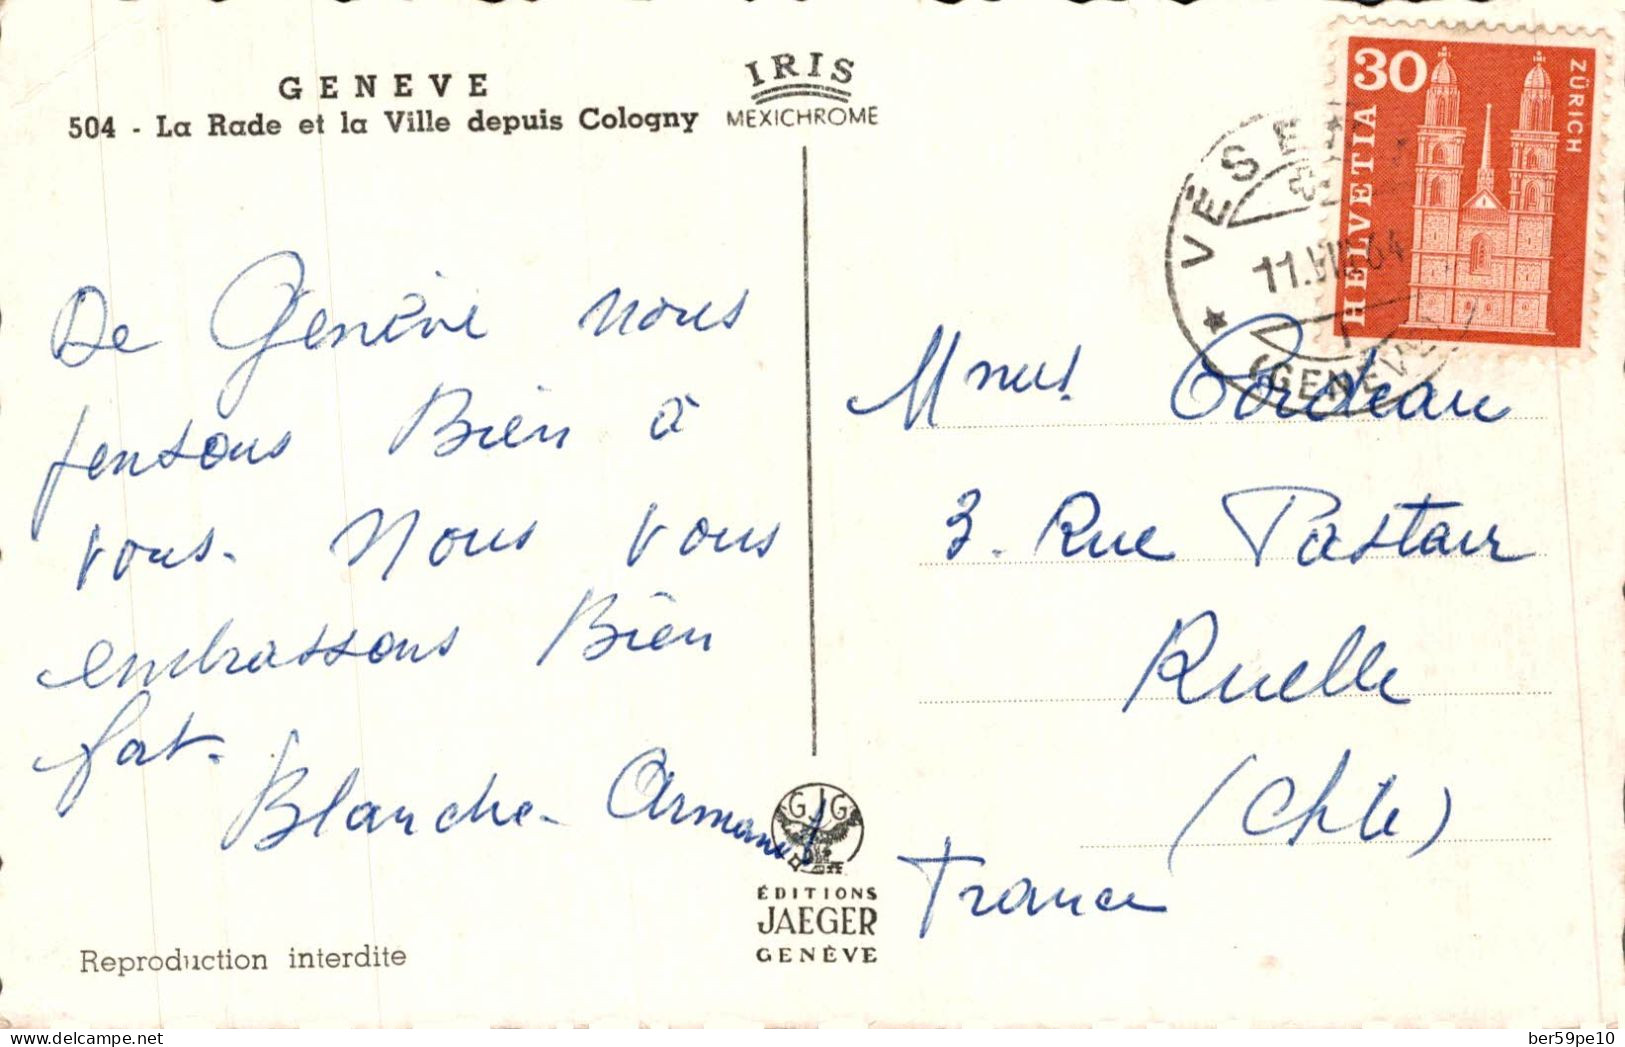 GENEVE
504 - La Rade et la Ville depuis Cologny
IRIS
MEXICHROME
De Genève nous
pensons Bien à
vous. Nous vous
embrassons Bien
fort.
Blanche Armand
Reproduction interdite
GJG
ÉDITIONS
JAEGER
GENÈVE
30
HELVETIA
ZÜRICH
VÉSEN
11.VIII.64
(GENÈVE)
Cordeau
3. Rue Pasteur
Ruelle
(Chte)
France
www.delcampe.net
ber59pe10